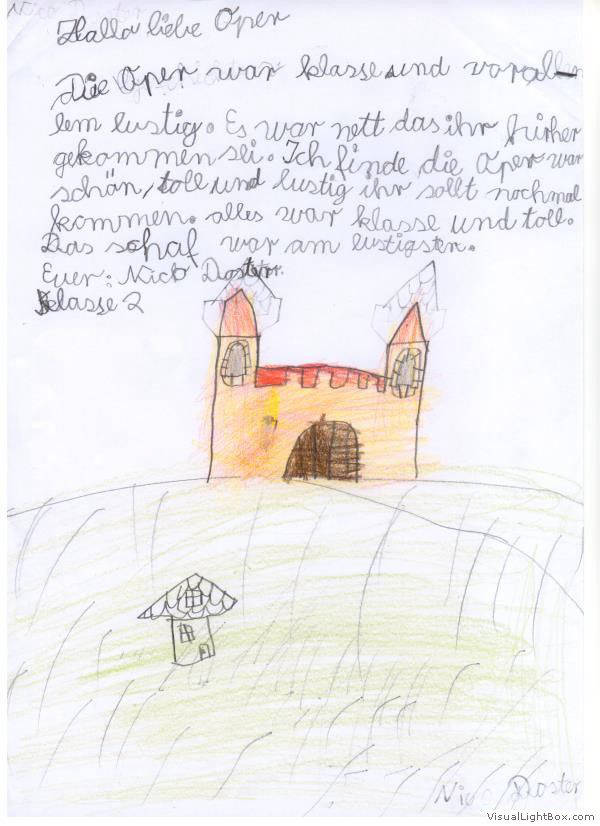 Nico Doster
Hallo liebe Oper
Die Oper war klasse und vorallen
lem lustig. Es war nett das ihr hürher
gekommen sei. Ich finde die Oper war
schön, toll und lustig ihr sollt nochmal
kommen. alles war klasse und toll.
Das schaf war am lustigsten.
Euer: Nico Doster.
Klasse 2
Nico Doster
VisualLightBox.com